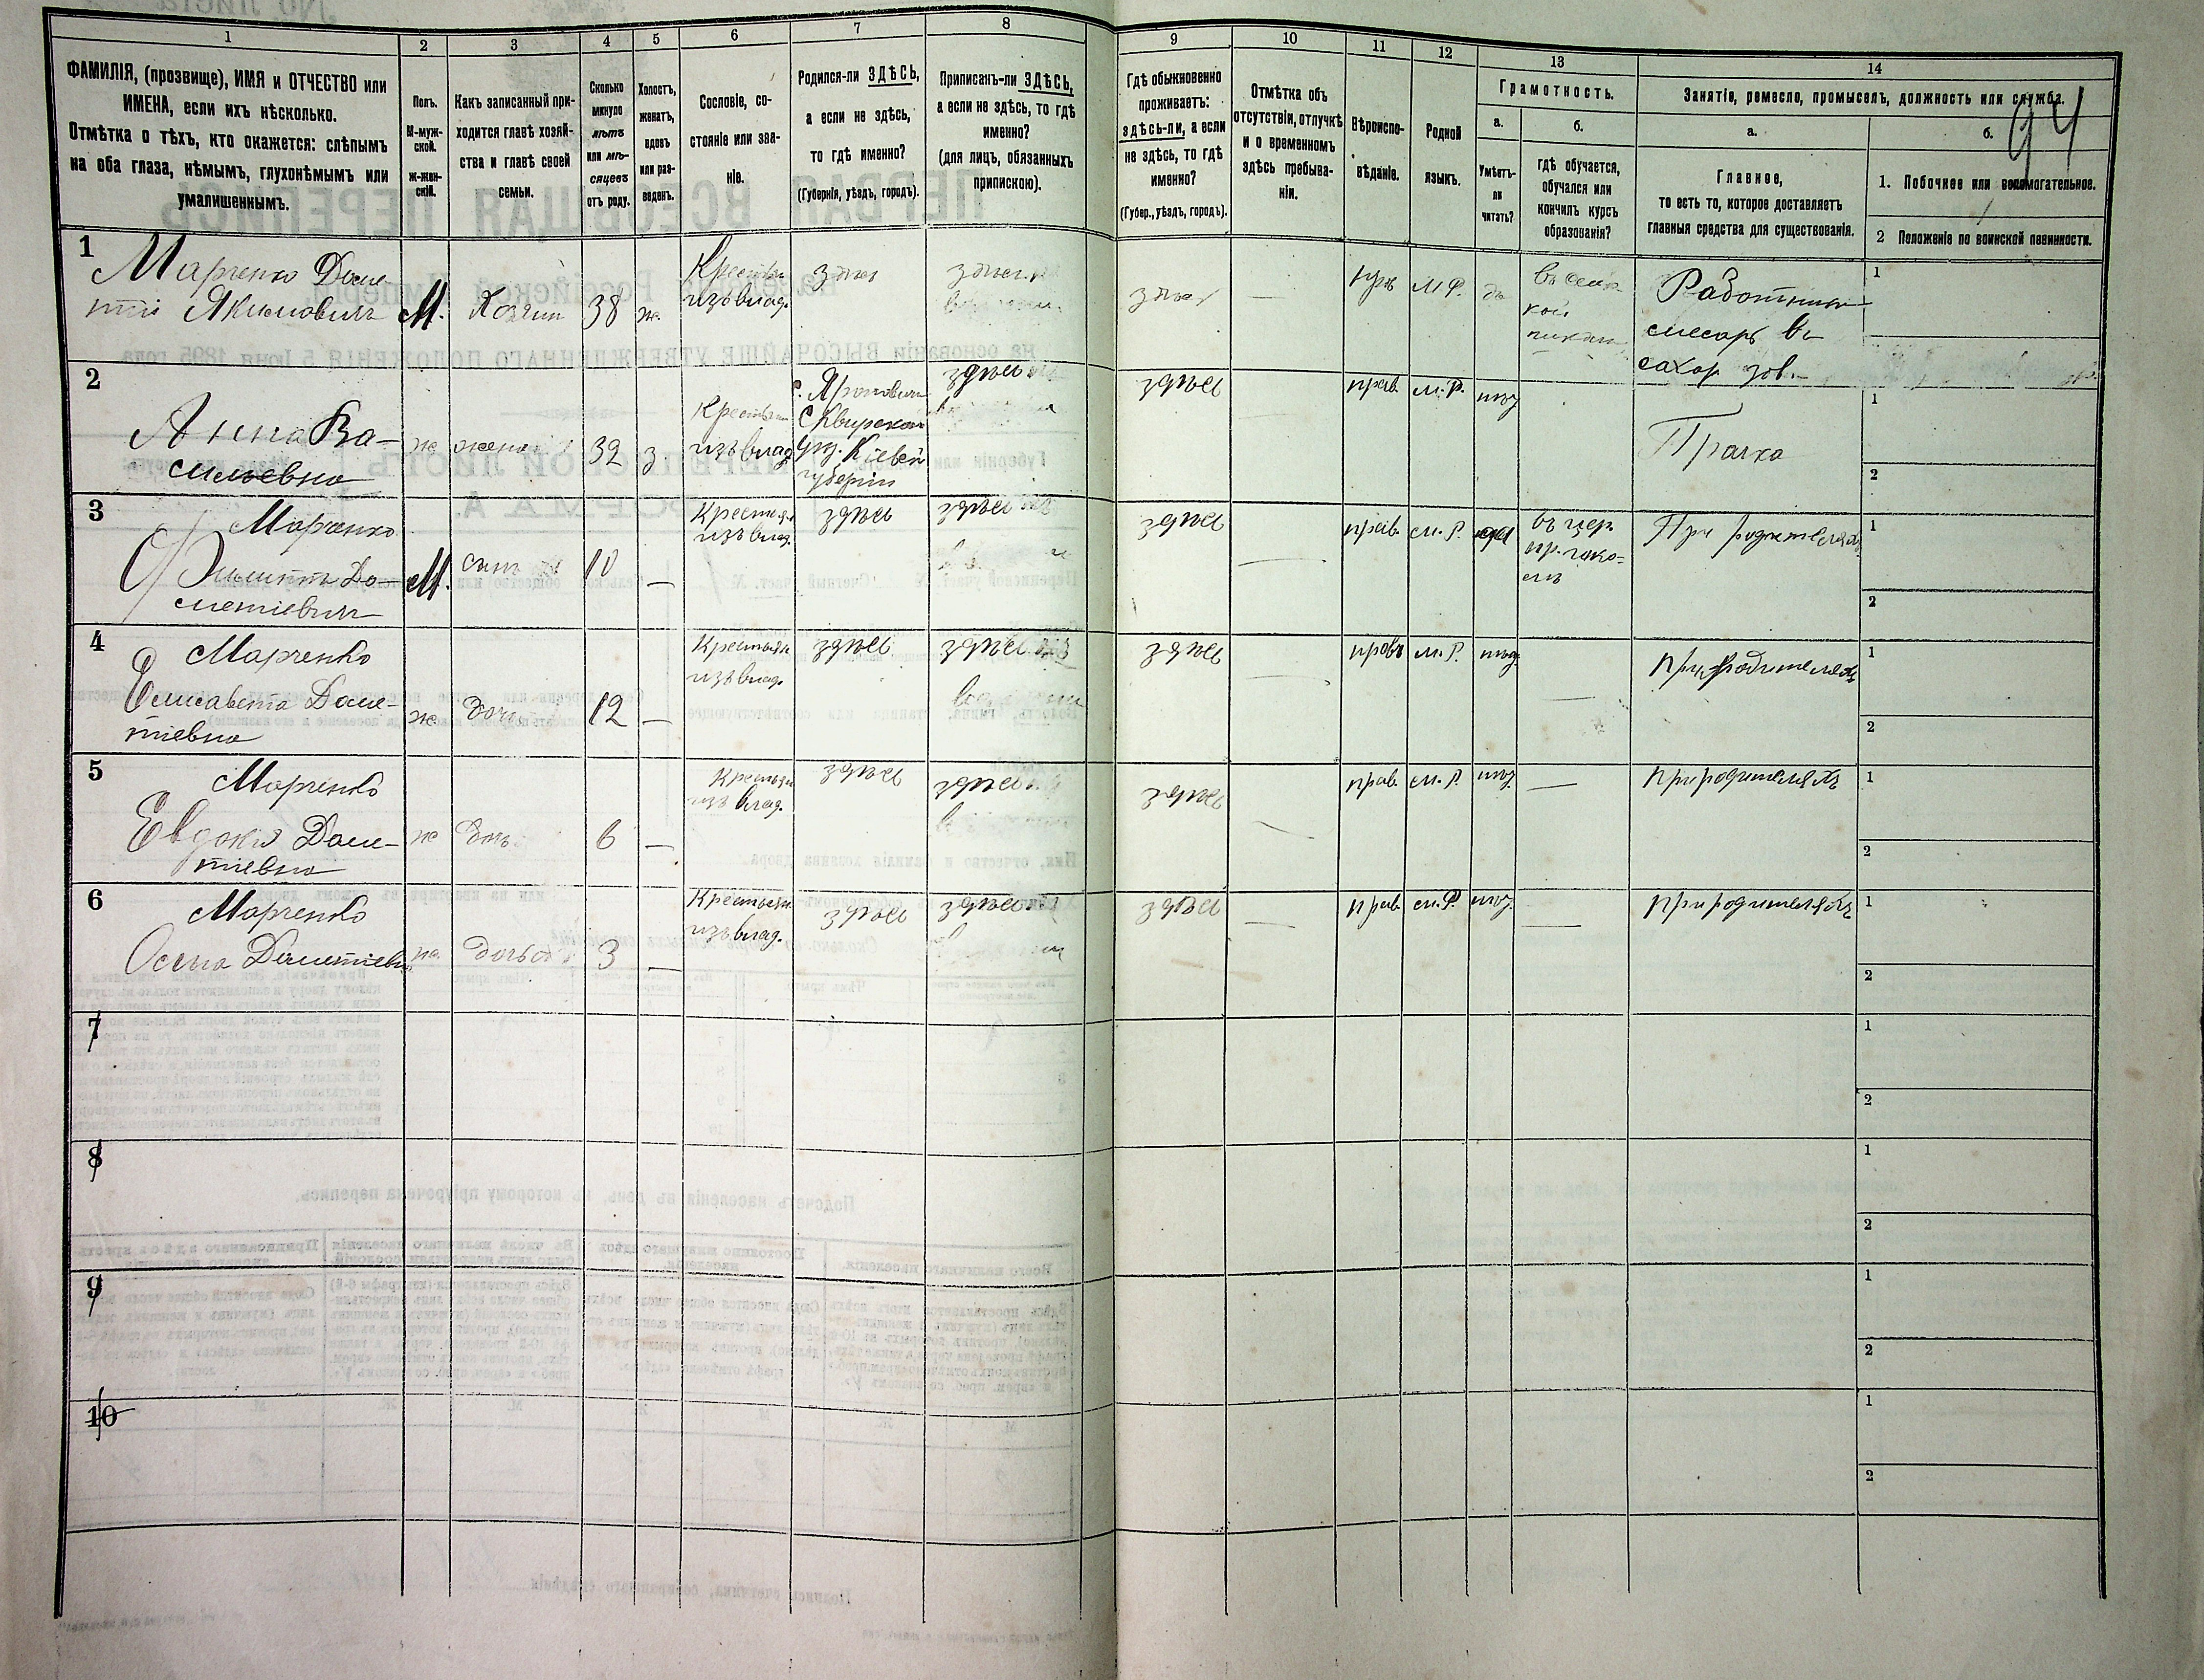 94
1
2
3
4
5
6
7
8
9
10
11
12
13
14
ФАМИЛІЯ, (прозвище), ИМЯ и ОТЧЕСТВО или
ИМЕНА, если ихъ нѣсколько.
Отмѣтка о тѣхъ, кто окажется: слѣпымъ
на оба глаза, нѣмымъ, глухонѣмымъ или
умалишеннымъ.
Полъ.
М-муж-
ской.
Ж-жен-
скій.
Какъ записанный при-
ходится главѣ хозяй-
ства и главѣ своей
семьи.
Сколько
минуло
лѣтъ
или мѣ-
сяцевъ
отъ роду.
Холостъ,
женатъ,
вдовъ
или раз-
веденъ.
Сословіе, со-
стояніе или зва-
ніе.
Родился-ли ЗДѢСЬ,
а если не здѣсь,
то гдѣ именно?
(Губернія, уѣздъ, городъ).
Приписанъ-ли ЗДѢСЬ,
а если не здѣсь, то гдѣ
именно?
(для лицъ, обязанныхъ
припискою).
Гдѣ обыкновенно
проживаетъ:
здѣсь-ли, а если
не здѣсь, то гдѣ
именно?
(Губер., уѣздъ, городъ).
Отмѣтка объ
отсутствіи, отлучкѣ
и о временномъ
здѣсь пребыва-
ніи.
Вѣроиспо-
вѣданіе.
Родной
языкъ.
Грамотность.
а.
Умѣетъ-
ли
читать?
б.
гдѣ обучается,
обучался или
кончилъ курсъ
образованія?
Занятіе, ремесло, промыселъ, должность или служба.
а.
Главное,
то есть то, которое доставляетъ
главныя средства для существованія.
б.
1. Побочное или вспомогательное.
2 Положеніе по воинской повинности.
1
Марченко Доме-
тій Якимовичъ
М.
Хозяин
38
ж.
Крестьян
изъ влад.
здѣсь
здѣсь
здѣсь
—
М.Р.
да
въ сель
кой
Работник
слесарь въ
сахар. зов.
1
2
Анна Ва-
сильевна
ж
жена
32
з.
Крестьян
изъ влад.
Сквирскаго
уѣз. Кіевск
губерніи
здѣсь
здѣсь
прав.
м.Р.
нѣт
Прачка
1
2
3
Марченко
Филиппъ До-
метіевич
М.
сынъ
10
—
Крестьян
изъ влад.
здѣсь
здѣсь
здѣсь
—
прав.
м.Р.
да
въ цер.
пр. шко-
лѣ
При родителяхъ
1
2
4
Марченко
Елисавета Доме-
тіевна
ж
дочь
12
—
Крестьян
изъ влад.
здѣсь
здѣсь
здѣсь
—
прав
м.Р.
нѣт
—
при родителяхъ
1
2
5
Марченко
Евдокія Доме-
тіевна
ж
дочь
6
—
Крестьян
изъ влад.
здѣсь
здѣсь
здѣсь
—
прав.
м.Р.
нѣт
—
при родителяхъ
1
2
6
Марченко
Дометіевн
ж.
дочь
3
—
Крестьян.
изъ влад.
здѣсь
здѣсь
здѣсь
—
прав.
м.Р.
нѣт.
—
при родителяхъ
1
2
7
1
2
8
1
2
9
1
2
10
1
2